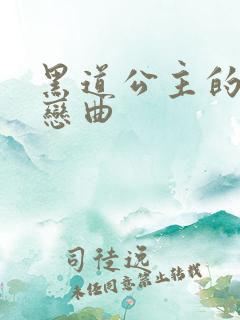 黑道公主的
戀曲
司徒逸
未经同意禁止转载